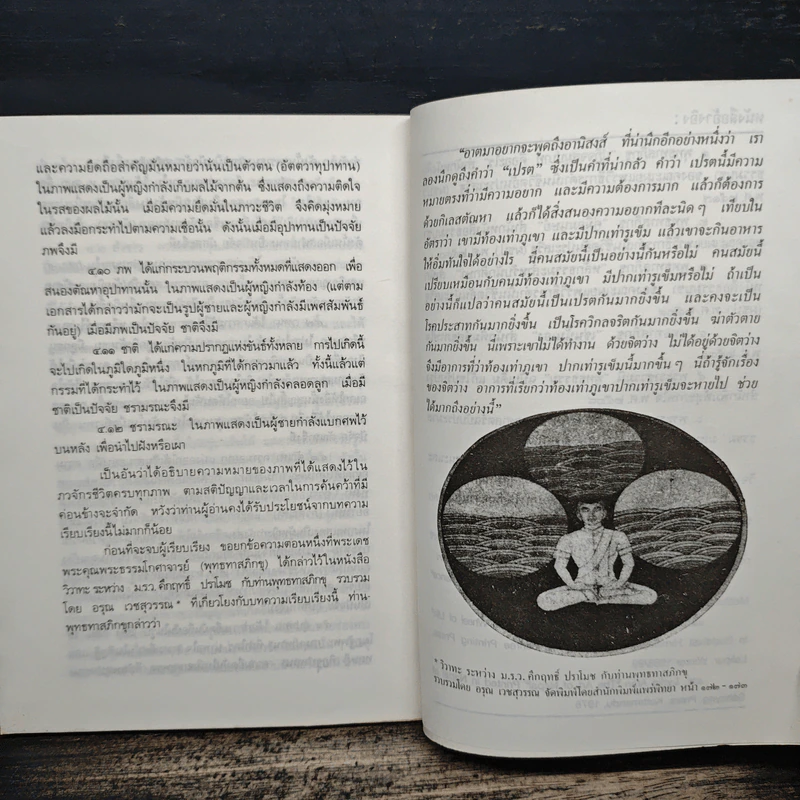 และความยึดถือสำคัญมั่นหมายว่านั่นเป็นตัวตน (อัตตวาทุปาทาน)
ในภาพแสดงเป็นผู้หญิงกำลังเก็บผลไม้จากต้น ซึ่งแสดงถึงความติดใจ
ในรสของผลไม้นั้น เมื่อมีความยึดมั่นในภาวะชีวิต จึงคิดมุ่งหมาย
แล้วลงมือกระทำไปตามความเชื่อนั้น ดังนั้นเมื่อมีอุปาทานเป็นปัจจัย
ภพจึงมี
๔.๑๐ ภพ ได้แก่กระบวนพฤติกรรมทั้งหมดที่แสดงออก เพื่อ
สนองตัณหาอุปาทานนั้น ในภาพแสดงเป็นผู้หญิงกำลังท้อง (แต่ตาม
เอกสารได้กล่าวว่ามักจะเป็นรูปผู้ชายและผู้หญิงกำลังมีเพศสัมพันธ์
กันอยู่) เมื่อมีภพเป็นปัจจัย ชาติจึงมี
๔.๑๑ ชาติ ได้แก่ความปรากฏแห่งขันธ์ทั้งหลาย การไปเกิดนี้
จะไปเกิดในภูมิใดภูมิหนึ่ง ในหกภูมิที่ได้กล่าวมาแล้ว ทั้งนี้แล้วแต่
กรรมที่ได้กระทำไว้ ในภาพแสดงเป็นผู้หญิงกำลังคลอดลูก เมื่อมี
ชาติเป็นปัจจัย ชรามรณะจึงมี
๔.๑๒ ชรามรณะ ในภาพแสดงเป็นผู้ชายกำลังแบกศพไว้
บนหลัง เพื่อนำไปฝังหรือเผา
เป็นอันว่าได้อธิบายความหมายของภาพที่ได้แสดงไว้ใน
ภวจักรชีวิตครบทุกภาพ ตามสติปัญญาและเวลาในการค้นคว้าที่มี
ค่อนข้างจะจำกัด หวังว่าท่านผู้อ่านคงได้รับประโยชน์จากบทความ
เรียบเรียงนี้ไม่มากก็น้อย
ก่อนที่จะจบผู้เรียบเรียง ขอยกข้อความตอนหนึ่งที่พระเดช
พระคุณพระธรรมโกศาจารย์ (พุทธทาสภิกขุ) ได้กล่าวไว้ในหนังสือ
วิวาทะ ระหว่าง ม.ร.ว. คึกฤทธิ์ ปราโมช กับท่านพุทธทาสภิกขุ รวบรวม
โดย อรุณ เวชสุวรรณ* ที่เกี่ยวโยงกับบทความเรียบเรียงนี้ ท่าน-
พุทธทาสภิกขุกล่าวว่า
"อาตมาอยากจะพูดถึงอานิสงส์ ที่น่านึกอีกอย่างหนึ่งว่า เรา
ลองนึกดูถึงคำว่า "เปรต" ซึ่งเป็นคำที่น่ากลัว คำว่า เปรตนี้มีความ
หมายตรงที่ว่ามีความอยาก และมีความต้องการมาก แล้วก็ต้องการ
ด้วยกิเลสตัณหา แล้วก็ได้สิ่งสนองความอยากทีละนิด ๆ เทียบใน
อัตราว่า เขามีท้องเท่าภูเขา และมีปากเท่ารูเข็ม แล้วเขาจะกินอาหาร
ให้อิ่มทันใจได้อย่างไร นี่คนสมัยนี้เป็นอย่างนี้กันหรือไม่ คนสมัยนี้
เปรียบเหมือนกับคนมีท้องเท่าภูเขา มีปากเท่ารูเข็มหรือไม่ ถ้าเป็น
อย่างนี้ก็แปลว่าคนสมัยนี้เป็นเปรตกันมากยิ่งขึ้น และคงจะเป็น
โรคประสาทกันมากยิ่งขึ้น เป็นโรควิกลจริตกันมากยิ่งขึ้น ฆ่าตัวตาย
กันมากยิ่งขึ้น นี่เพราะเขาไม่ได้ทำงาน ด้วยจิตว่าง ไม่ได้อยู่ด้วยจิตว่าง
จึงมีอาการที่ว่าท้องเท่าภูเขา ปากเท่ารูเข็มนี้มากขึ้น ๆ นี่ถ้ารู้จักเรื่อง
ของจิตว่าง อาการที่เรียกว่าท้องเท่าภูเขาปากเท่ารูเข็มจะหายไป ช่วย
ได้มากถึงอย่างนี้"
* วิวาทะ ระหว่าง ม.ร.ว. คึกฤทธิ์ ปราโมช กับท่านพุทธทาสภิกขุ
รวบรวมโดย อรุณ เวชสุวรรณ จัดพิมพ์โดยสำนักพิมพ์แพร่พิทยา หน้า ๑๗๒ - ๑๗๓